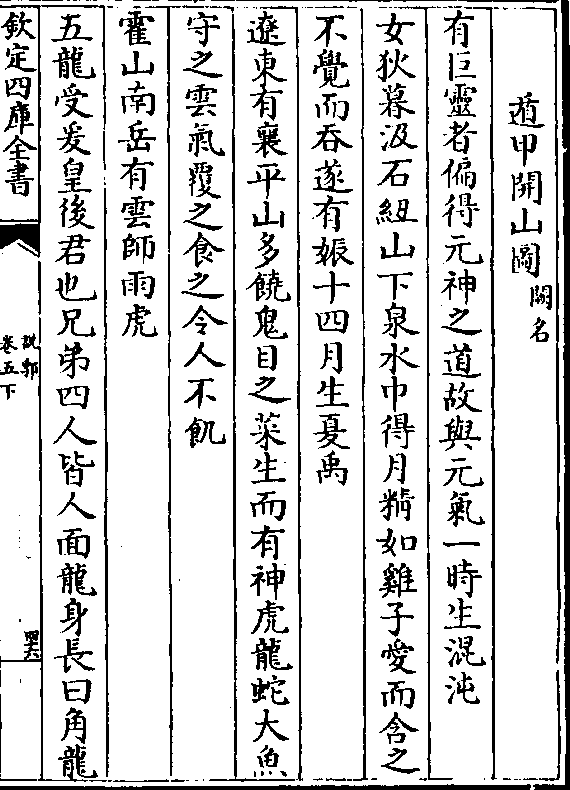 遁甲開山圖 闕名
有巨靈者偏得元神之道故與元氣一時生混沌
女狄暮汲石紐山下泉水中得月精如雞子愛而含之
不覺而吞遂有娠十四月生夏禹
遼東有襄平山多饒鬼目之菜生而有神虎龍蛇大魚
守之雲氣覆之食之令人不飢
霍山南岳有雲師雨虎
五龍受爰皇後君也兄弟四人皆人面龍身長曰角龍
欽定四庫全書
說郛
卷五下
四六